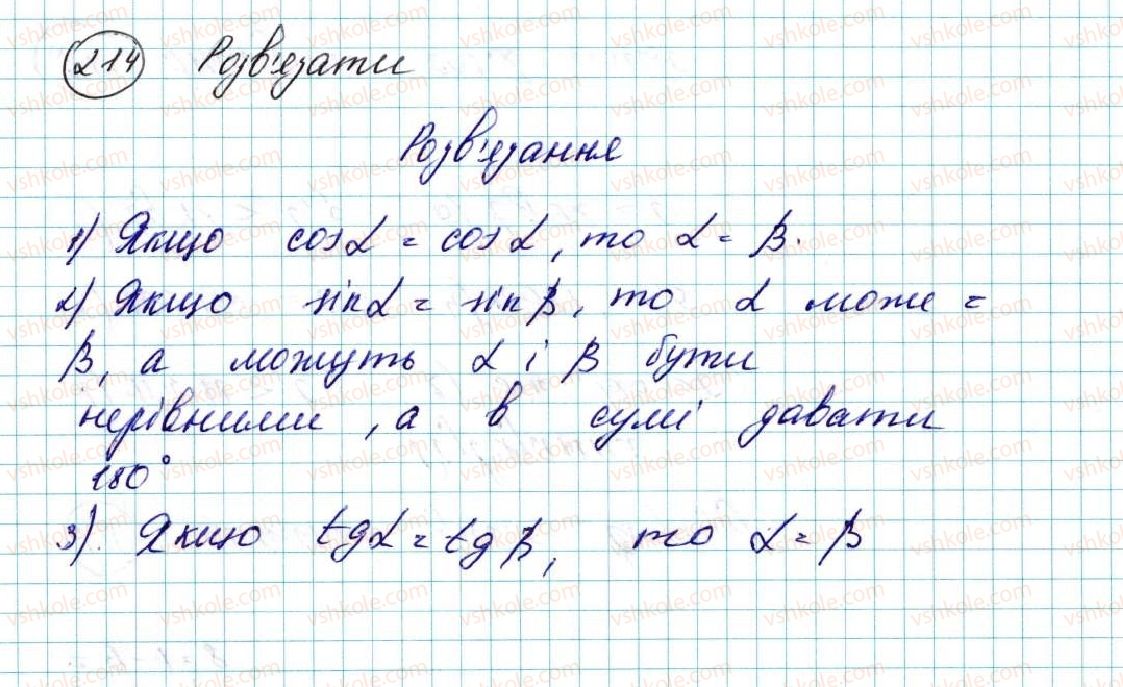 214 Розв'язати
Розв'язання
1) Якщо cosα = cosα, то α = β.
2) Якщо sinα = sinβ, то α може =
β, а можуть α і β бути
нерівними, а в сумі давати
180°
3). Якщо tgα = tgβ, то α = β